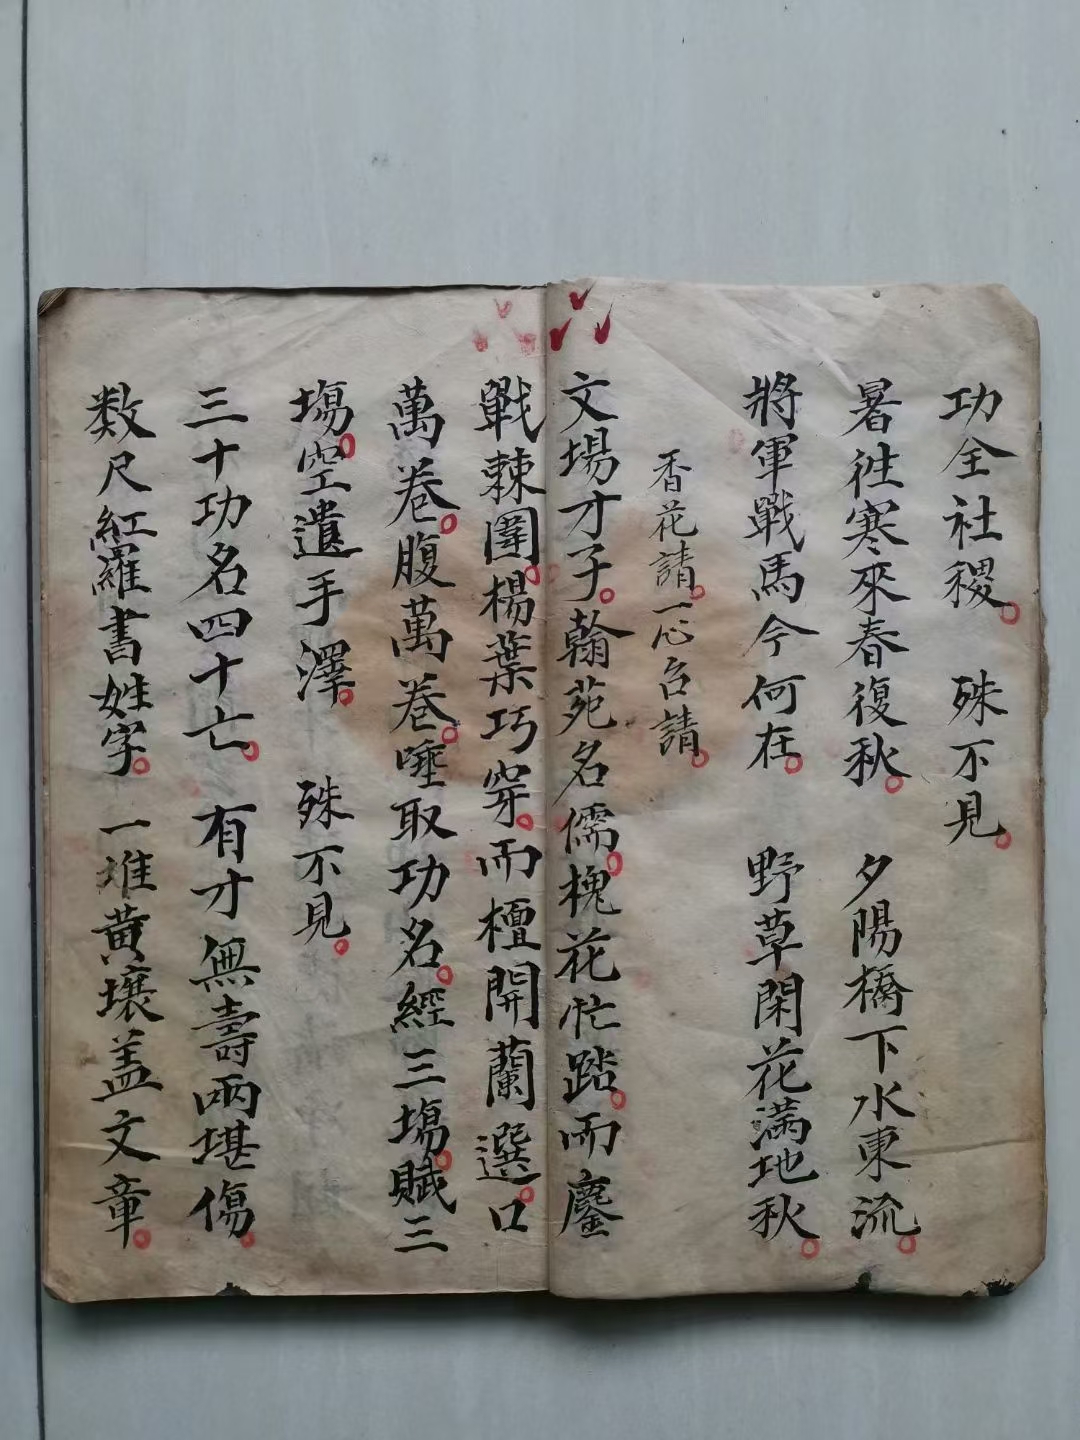 功全社稷。　殊不見。
暑徃寒來春復秋。　夕陽橋下水東流。
將軍戰馬今何在。　野草閑花滿地秋。
香花請。一心召請。
文場才子。翰苑名儒。槐花忙踏。而鏖
戰棘圍。楊葉巧穿。而檀開蘭選。口
萬卷。腹萬卷。唾取功名。經三塲。賦三
塲。空遺手澤。　殊不見。
三十功名四十亡。　有才無壽兩堪傷。
数尺紅羅書姓字。　一堆黃壤盖文章。